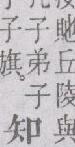 地丘陵與
子弟子
子旗。
知